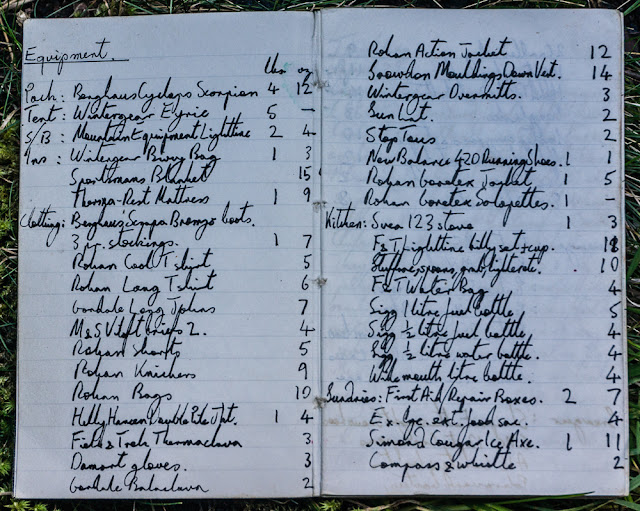 Equipment.
lbs oz
Pack: Berghaus Cyclops Scorpion 4 12
Tent: Wintergear Eyrie 5 —
S/B: Mountain Equipment Lightline 2 4
Ins: Wintergear Bivvy Bag 1 3
Sportsmans Blanket 15
Therma-Rest Mattress 1 9
Clothing: Berghaus Scarpa Bronzo boots.
3 pr. stockings. 1 7
Rohan Cool T shirt 5
Rohan Long T shirt 6
Gondale Long Johns 7
M&S briefs 2. 4
Rohan Shorts 5
Rohan Knickers 9
Rohan Bags 10
Helly Hansen Double Pile Jkt. 1 4
Field & Trek Thermaclava 3
Damart gloves. 3
Gondale Balaclava 2
Rohan Action Jacket 12
Snowdon Mouldings Down Vest. 14
Wintergear Overmitts. 3
Sun Hat. 2
Stop Tous 2
New Balance 420 Running Shoes. 1 1
Rohan Goretex Jacket 1 5
Rohan Goretex Salopettes. 1 —
Kitchen: Svea 123 stove 1 3
F&T Lightline billy set + cup. 18
10
F&T Water Bag 4
Sigg 1 litre fuel bottle 5
Sigg ½ litre fuel bottle 4
Sigg ½ litre water bottle. 4
Wide mouth litre bottle. 4
Sundries: First Aid, Repair Boxes. 2 7
Ex. lge. ext. food sac. 4
Simond Cougar Ice Axe. 1 11
Compass & whistle 2